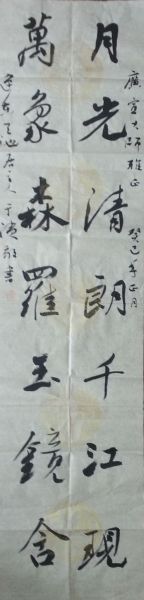 廣宣大師雅正 癸巳年正月
月光清朗千江現
萬象森羅玉鏡含